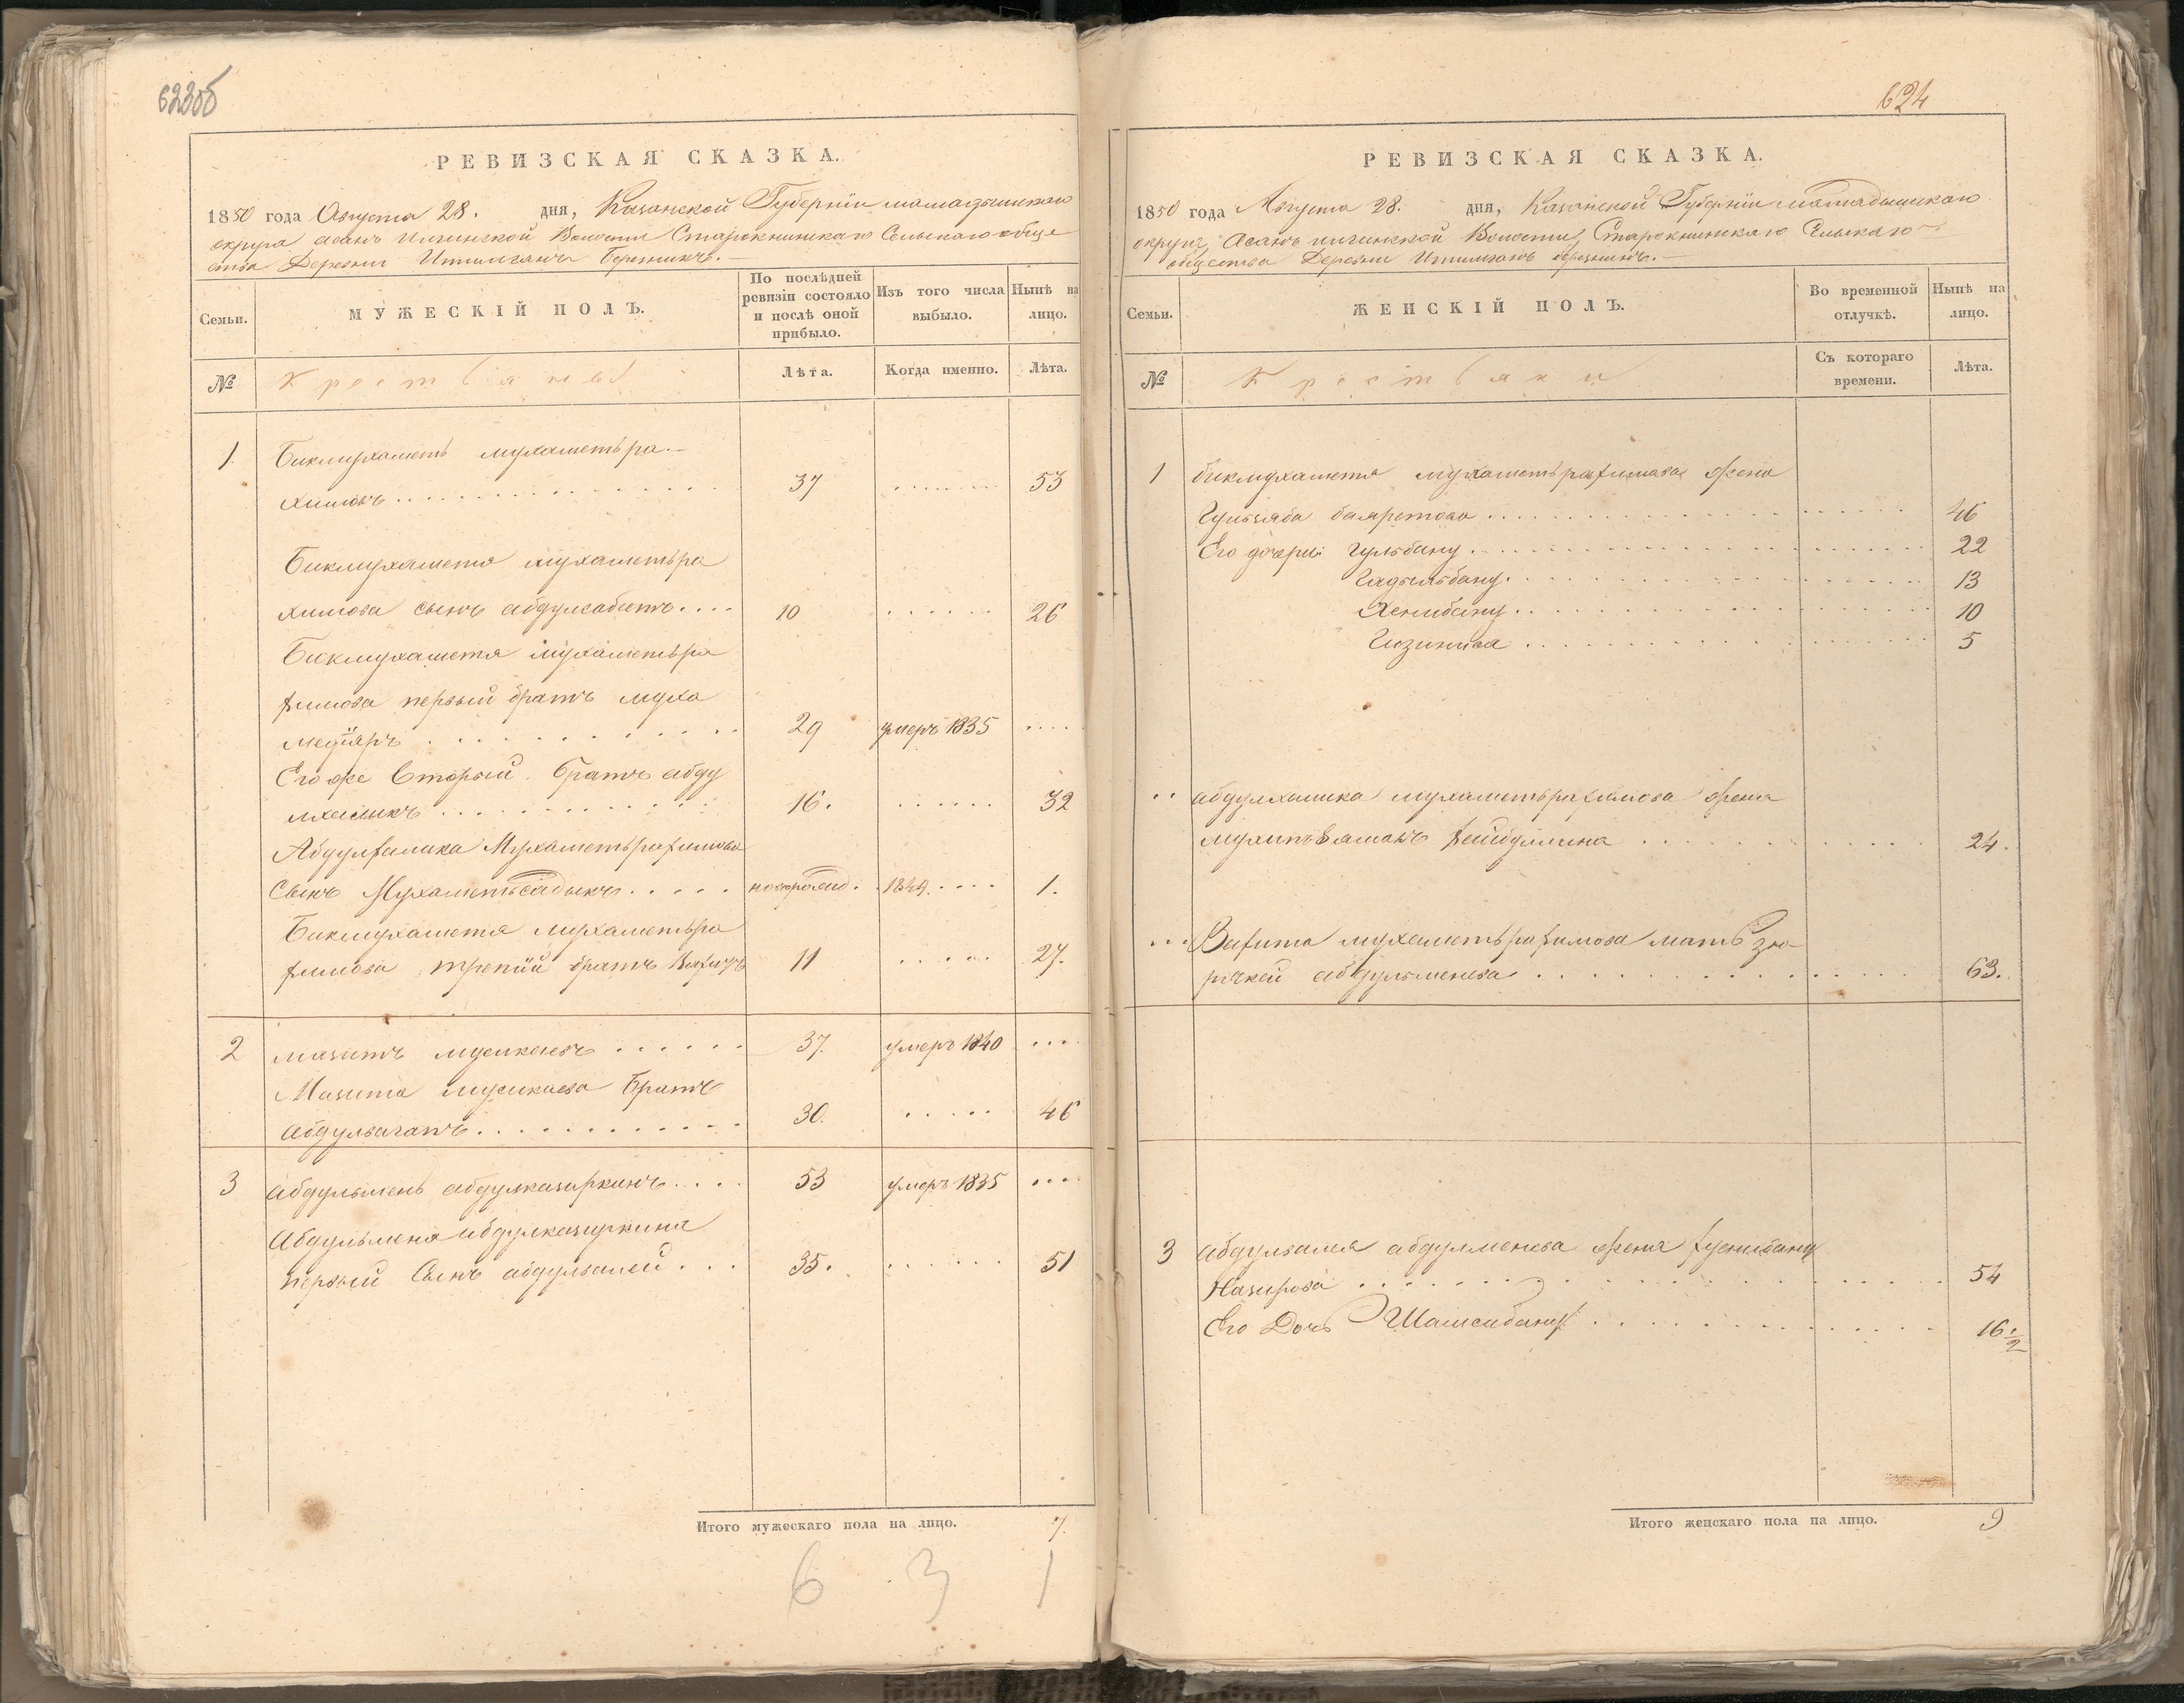 623об
РЕВИЗСКАЯ СКАЗКА.
1850 года Августа 28. дня, Казанской Губернiи мамадышскаго
округа асанъ Илгинской Волости Старокнинскаго Сельскаго обще
ства Деревни
Семьи.
МУЖЕСКIЙ ПОЛЪ.
По послѣдней ревизiи состояло и послѣ оной прибыло.
Изъ того числа выбыло.
Нынѣ на лицо.
№
Крестьяне
Лѣта.
Когда именно.
Лѣта.
1. Бикмухаметъ мухаметьра-
химовъ 37 53
Бикмухаметя мухаметьра
химова сынъ абдулхабитъ 10 26
Бикмухаметя мухаметьра
химова первый братъ муха
медiяръ 29 умеръ 1835
Его же Вторый братъ абду
лхаликъ 16. 32
Абдулхалика Мухаметьрахимова
Сынъ Мухаметьсадыкъ новорожд. 1849. 1.
Бикмухаметя мухаметьра
химова третiй братъ 11 27.
2 мазитъ мусикаевъ 37. умеръ 1840
Мазита мусикаева братъ
абдулвагапъ 30. 46
3 абдульменъ абдулказиркинъ 53 умеръ 1835
Абдульменя абдулказиркина
первый Сынъ абдулвалей 35. 51
Итого мужескаго пола на лицо. 7.
6 3 1
624
РЕВИЗСКАЯ СКАЗКА.
1850 года Августа 28. дня, Казанской Губернiи мамадышскаго
округа, Асанъ илгинской Волости, Старокнинскаго Сельскаго
общества Деревни
Семьи.
ЖЕНСКIЙ ПОЛЪ.
Во временной отлучкѣ.
Нынѣ на лицо.
№
Крестьяни
Съ котораго времени.
Лѣта.
1 бикмухаметя мухаметьрахимова жена
Гульзяба 46
Его дочери: Гульбану 22
Гадильбану 13
Хенибану 10
5
абдулхалика мухаметьрахимова жена
24.
мухаметьрахимова мать
абдульменева 63.
3 абдулвалея абдулменева жена
Назирова 54
Его Дочь Шамсибану 16 1/2
Итого женскаго пола на лицо. 9